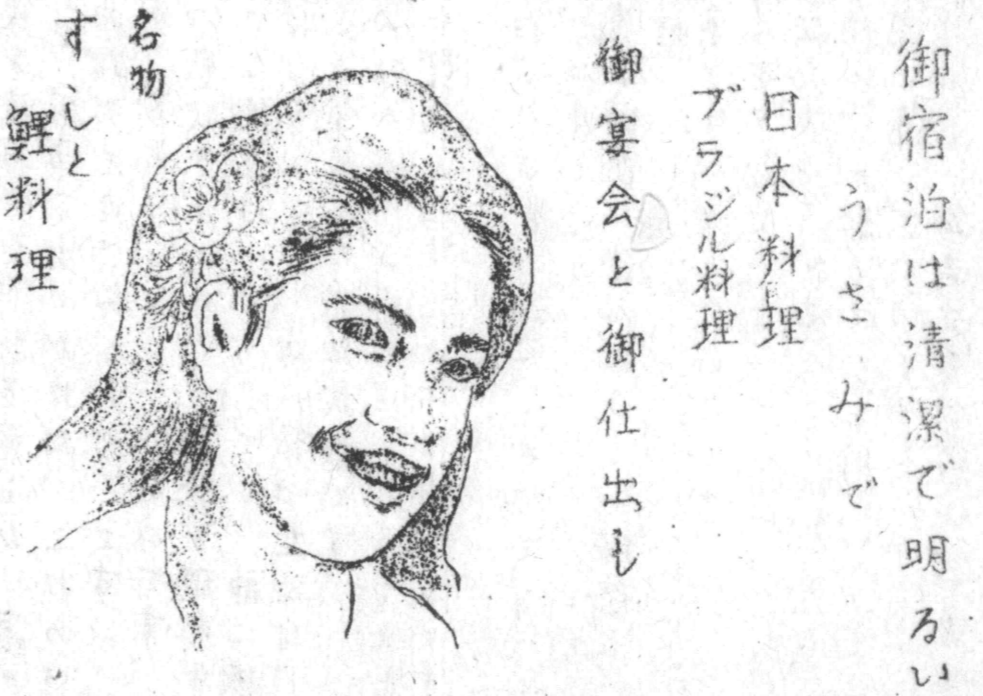 御宿泊は清潔で明るい
うさみで
日本料理
ブラジル料理
御宴会と御仕出も
名物
すしと
鯉料理